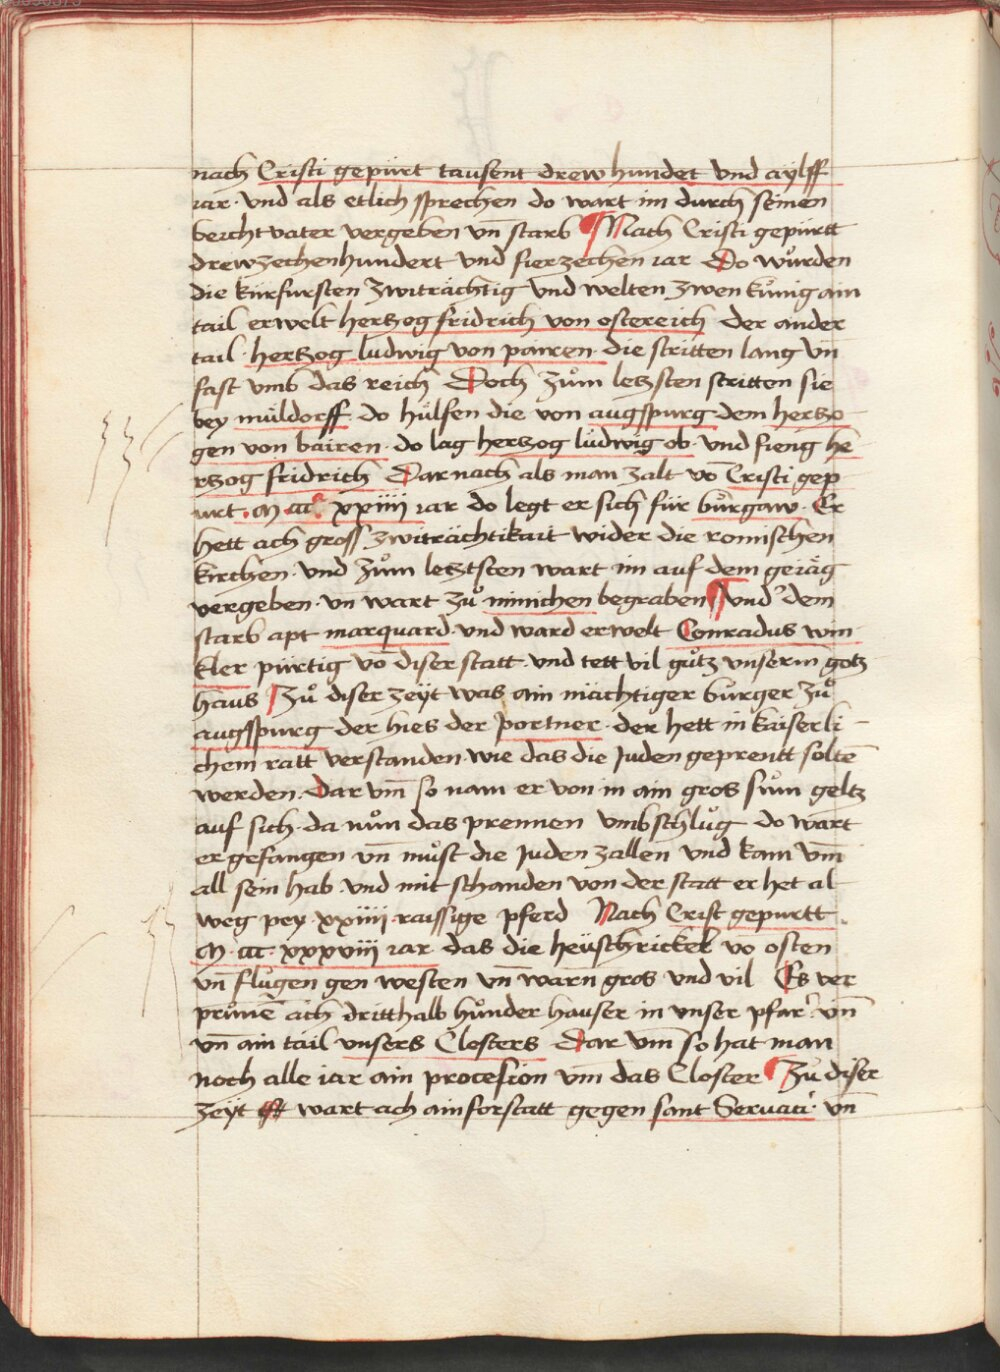 nach Cristi gepürt tausent drew hundet vnd aÿlff
iar · vnd als etlich sprechen do wart im durch seinen
beicht vater vergeben vn̄ starb ¶ Nach Cristi gepürtt
drewzechenhundert vnd fierzechen iar Do wůrden
die kürfursten zwiträchtig vnd welten zwen kůnig ain
tail erwelt hertzog fridrich von ostereich der ander
tail · hertzog ludwig von pairen · die stritten lang vn̄
fast vmb das reich Doch zům letzsten stritten sie
bey müldorff · do hülfen die von augspurg dem hertzo-
gen von bairen · do lag hertzog lüdwig ob · vnd fieng he-
rtzog fridrich Dar nach als man zalt vō Cristi gep
urt · M · ccc · xxiiii iar do legt er sich für bůrgaw · Er
hett ach gross zwiträchtikait wider die romischen
kirchen · vnd zům letztsten wart im auf dem geiäg
vergeben · vn̄ wart zů münichen begraben ¶ vnd dem
starb apt marquard · vnd ward erwelt Conradus win-
kler pürtig vō diser statt · vnd tett vil gůtz vnserm gotz
haus ¶ Zů diser zeÿt was ain mächtiger bůrger zů
augspurg der hies der portner · der hett in kaiserli-
chem ratt verstanden · wie das die Juden geprentt soltē
werden · Dar vm̄ so nam er von in ain gros sům geltz
auf sich · da nůn das prennen vmb schlůg do wart
er gefangen vn̄ můst die Juden zallen vnd kam vm̄
all sein hab · vnd mit schanden von der statt er het al-
weg pey · xxiiii · raissige pferd Nach Crist gepurtt ·
M · ccc · xxxviii iar das die heüschrickel vō osten
vn̄ flůgen gen westen vn̄ warn gros vnd vil Es ver
průnē ach dritthalb hůnder hauser in vnser pfar vn̄
vn̄ ain tail vnsers Closters Dar vm̄ so hat man
noch alle iar ain procesion vm̄ das Closter ¶ Zů diser
zeÿt wart ach ain forstatt gegen sant Seruaci · vn̄